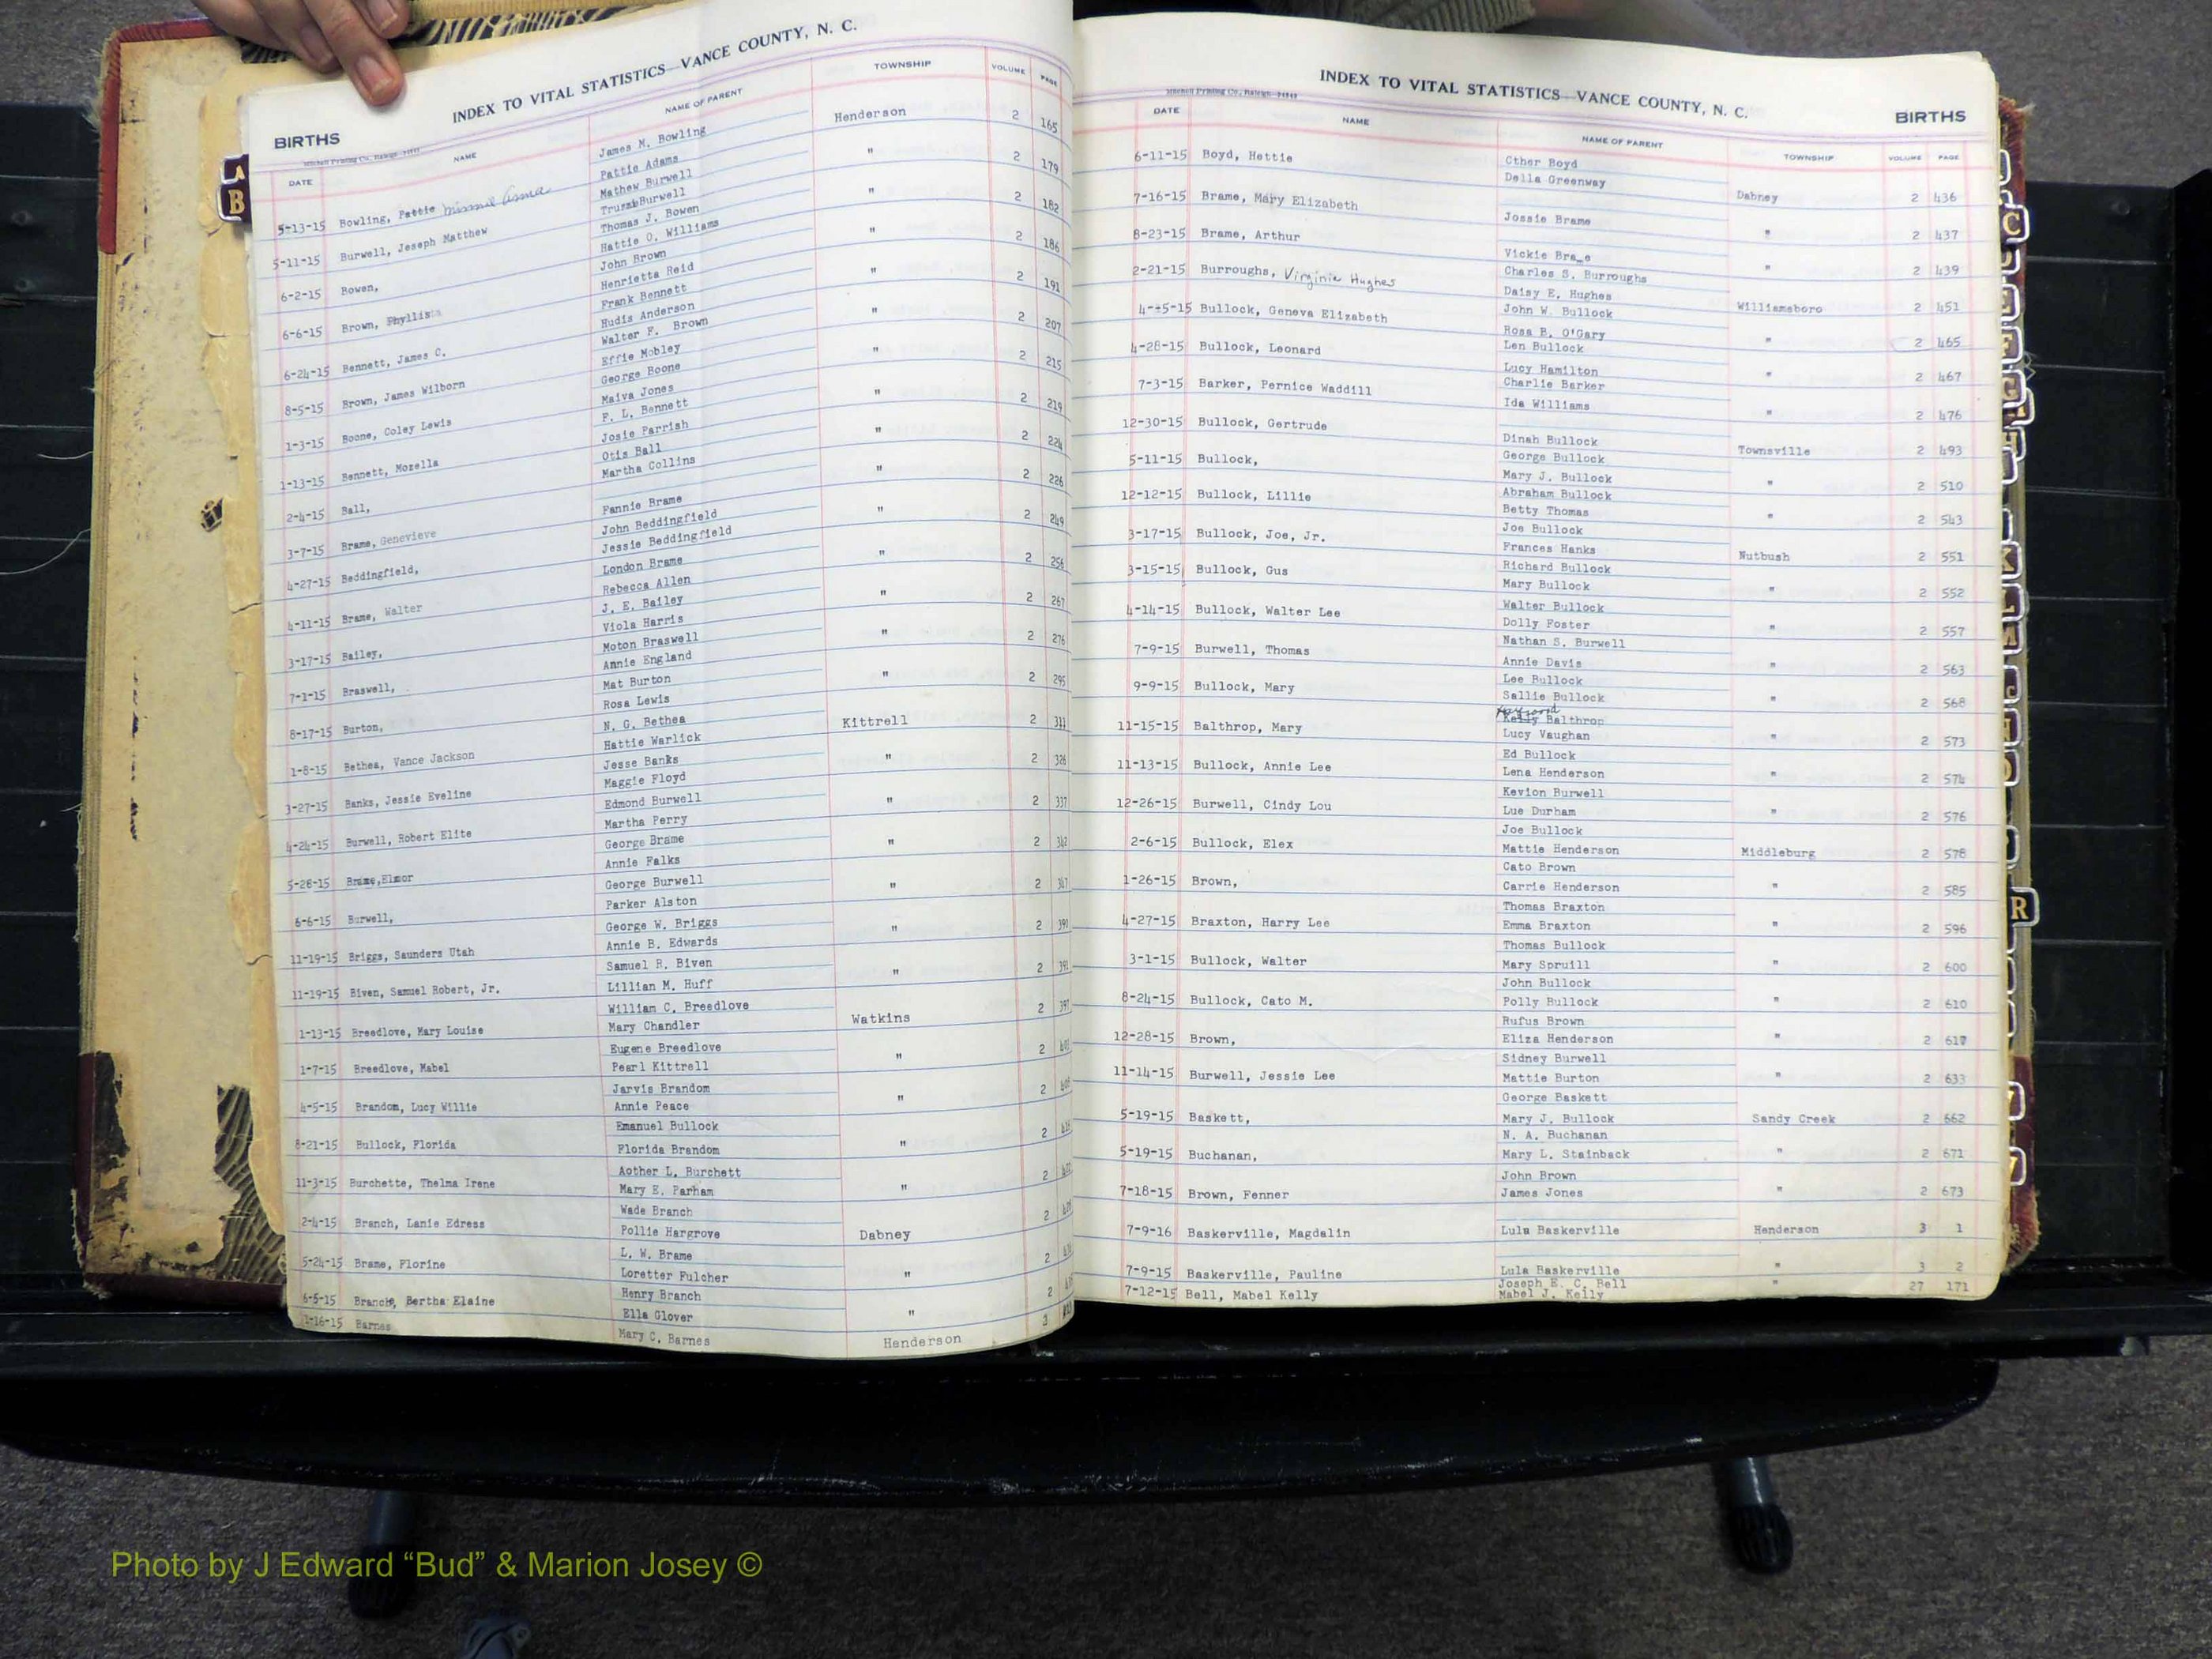 INDEX TO VITAL STATISTICS—VANCE COUNTY, N. C.
BIRTHS
Mitchell Printing Co., Raleigh
DATE NAME NAME OF PARENT TOWNSHIP VOLUME PAGE
5-13-15 Bowling, Pattie James M. Bowling Henderson 2 165
Pattie Adams
5-11-15 Burwell, Joseph Matthew Mathew Burwell " 2 179
Burwell
6-2-15 Bowen, Thomas J. Bowen " 2 182
Hattie O. Williams
6-6-15 Brown, Phyllis John Brown " 2 186
Henrietta Reid
6-24-15 Bennett, James C. Frank Bennett " 2 191
Hudis Anderson
8-5-15 Brown, James Wilborn Walter F. Brown " 2 207
Effie Mobley
1-3-15 Boone, Coley Lewis George Boone " 2 215
Maiva Jones
1-13-15 Bennett, Mozella F. L. Bennett " 2 219
Josie Parrish
2-4-15 Ball, Otis Ball " 2 224
Martha Collins
3-7-15 Brame, Genevieve " 2 226
Fannie Brame
4-27-15 Beddingfield, John Beddingfield " 2 249
Jessie Beddingfield
4-11-15 Brame, Walter London Brame " 2 256
Rebecca Allen
3-17-15 Bailey, J. E. Bailey " 2 267
Viola Harris
7-1-15 Braswell, Moton Braswell " 2 276
Annie England
8-17-15 Burton, Mat Burton " 2 295
Rosa Lewis
1-8-15 Bethea, Vance Jackson N. G. Bethea Kittrell 2 311
Hattie Warlick
3-27-15 Banks, Jessie Eveline Jesse Banks " 2 326
Maggie Floyd
4-24-15 Burwell, Robert Elite Edmond Burwell " 2 337
Martha Perry
5-28-15 Brame, Elmor George Brame " 2 342
Annie Falks
6-6-15 Burwell, George Burwell " 2 347
Parker Alston
11-19-15 Briggs, Saunders Utah George W. Briggs " 2 390
Annie B. Edwards
11-19-15 Biven, Samuel Robert, Jr. Samuel R. Biven " 2 391
Lillian M. Huff
1-13-15 Breedlove, Mary Louise William C. Breedlove Watkins 2 397
Mary Chandler
1-7-15 Breedlove, Mabel Eugene Breedlove " 2
Pearl Kittrell
4-5-15 Brandon, Lucy Willie Jarvis Brandom " 2
Annie Peace
8-21-15 Bullock, Florida Emanuel Bullock " 2
Florida Brandom
11-3-15 Burchette, Thelma Irene Aother L. Burchett " 2
Mary E. Parham
2-4-15 Branch, Lanie Edress Wade Branch Dabney 2
Pollie Hargrove
5-24-15 Brame, Florine L. W. Brame " 2
Loretter Fulcher
6-5-15 Branch, Bertha Elaine Henry Branch " 2
Ella Glover
1-16-15 Barnes Mary C. Barnes Henderson 3
INDEX TO VITAL STATISTICS—VANCE COUNTY, N. C.
BIRTHS
Mitchell Printing Co., Raleigh
DATE NAME NAME OF PARENT TOWNSHIP VOLUME PAGE
6-11-15 Boyd, Hettie Cther Boyd
Della Greenway Dabney 2 436
7-16-15 Brame, Mary Elizabeth
Jossie Brame " 2 437
8-23-15 Brame, Arthur
Vickie Brame " 2 439
2-21-15 Burroughs, Virginia Hughes Charles S. Burroughs
Daisy E. Hughes Williamsboro 2 451
4-15-15 Bullock, Geneva Elizabeth John W. Bullock
Rosa B. O'Gary " 2 465
4-28-15 Bullock, Leonard Len Bullock
Lucy Hamilton " 2 467
7-3-15 Barker, Pernice Waddill Charlie Barker
Ida Williams " 2 476
12-30-15 Bullock, Gertrude
Dinah Bullock Townsville 2 493
5-11-15 Bullock, George Bullock
Mary J. Bullock " 2 510
12-12-15 Bullock, Lillie Abraham Bullock
Betty Thomas " 2 543
3-17-15 Bullock, Joe, Jr. Joe Bullock
Frances Hanks Nutbush 2 551
3-15-15 Bullock, Gus Richard Bullock
Mary Bullock " 2 552
4-14-15 Bullock, Walter Lee Walter Bullock
Dolly Foster " 2 557
7-9-15 Burwell, Thomas Nathan S. Burwell
Annie Davis " 2 563
9-9-15 Bullock, Mary Lee Bullock
Sallie Bullock " 2 568
11-15-15 Balthrop, Mary Kelly Balthrop
Lucy Vaughan " 2 573
11-13-15 Bullock, Annie Lee Ed Bullock
Lena Henderson " 2 574
12-26-15 Burwell, Cindy Lou Kevion Burwell
Lue Durham " 2 576
2-6-15 Bullock, Elex Joe Bullock
Mattie Henderson Middleburg 2 578
1-26-15 Brown, Cato Brown
Carrie Henderson " 2 585
4-27-15 Braxton, Harry Lee Thomas Braxton
Emma Braxton " 2 596
3-1-15 Bullock, Walter Thomas Bullock
Mary Spruill " 2 600
8-24-15 Bullock, Cato M. John Bullock
Polly Bullock " 2 610
12-28-15 Brown, Rufus Brown
Eliza Henderson " 2 617
11-14-15 Burwell, Jessie Lee Sidney Burwell
Mattie Burton " 2 633
5-19-15 Baskett, George Baskett
Mary J. Bullock Sandy Creek 2 662
5-19-15 Buchanan, N. A. Buchanan
Mary L. Stainback " 2 671
7-18-15 Brown, Fenner John Brown
James Jones " 2 673
7-9-16 Baskerville, Magdalin Lula Baskerville Henderson 3 1
7-9-15 Baskerville, Pauline Lula Baskerville " 3 2
7-12-15 Bell, Mabel Kelly Joseph E. C. Bell " 27 171
Mabel J. Kelly
A
B
C
E
F
G
H
K
L
M
R
Photo by J Edward “Bud” & Marion Josey ©